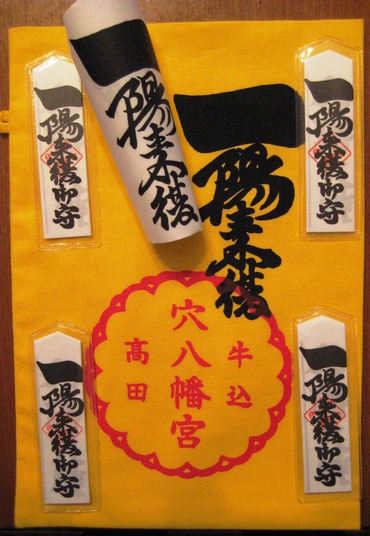 一陽来復
一陽来復
穴八幡宮
牛込
高田
一陽来復御守
一陽来復御守
一陽来復御守
一陽来復御守